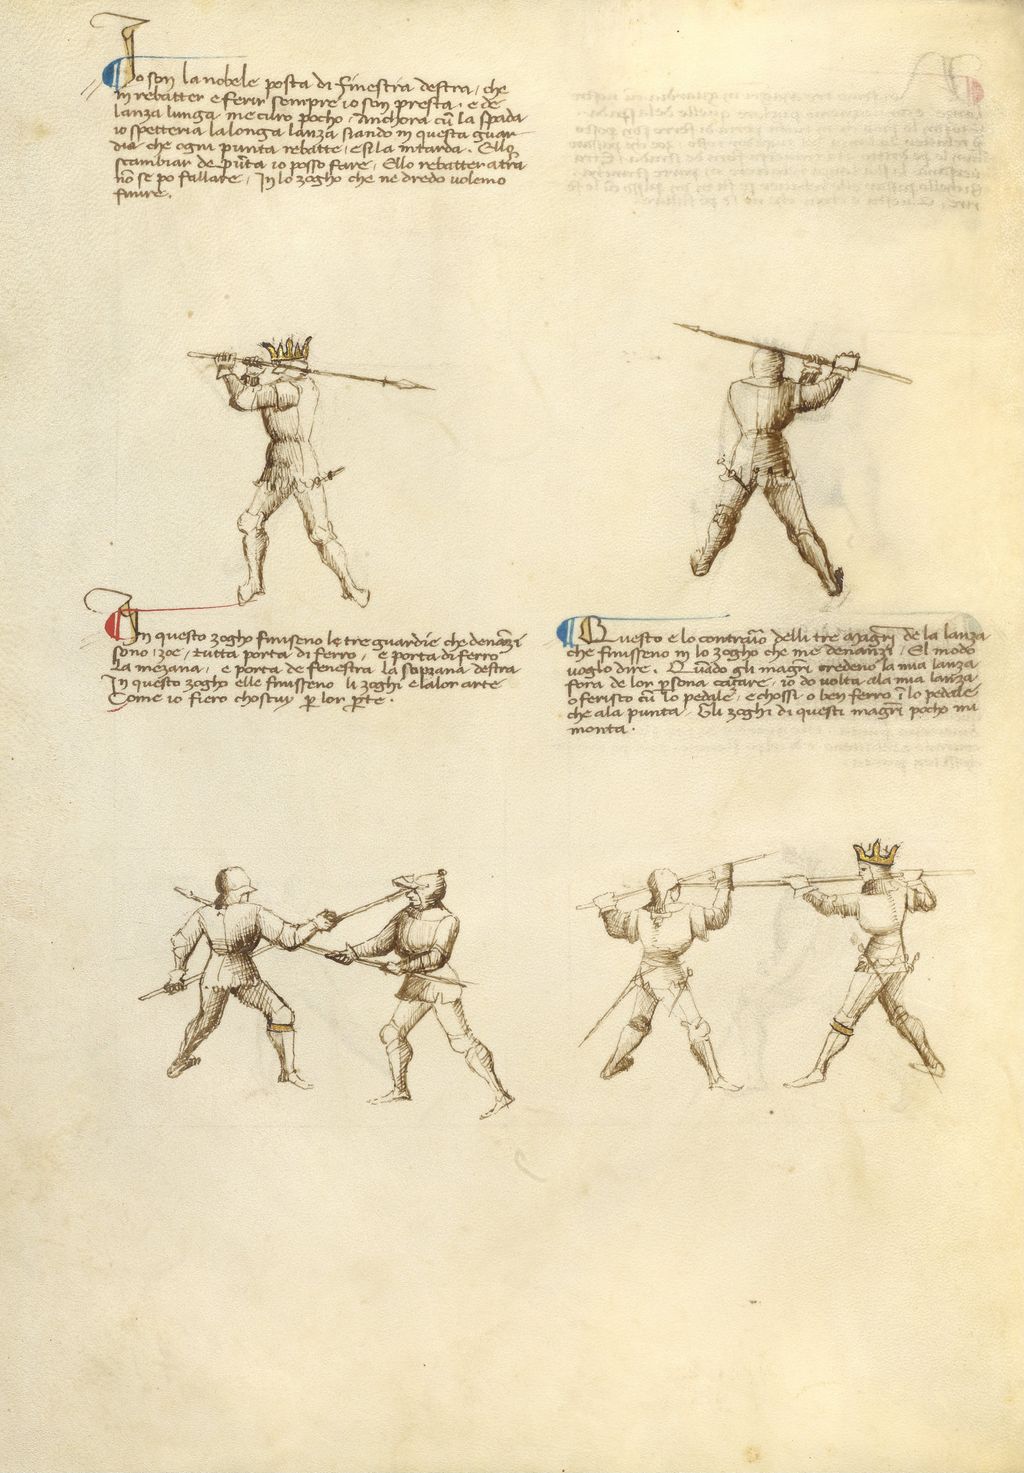 Io son la nobele posta di finestra destra, che
in rebatter e ferir sempre io son presta. e de
lanza lunga me curo pocho. Anchora cũ la spada
io spetteria la longa lanza stando in questa guar-
dia che ogni punta rebatte, e si la intarda. Ello
scambiar de pũta io posso fare, Ello rebatter
nõ se po fallare, In lo zogho che ne dredo volemo
finire.
In questo zogho finiseno le tre guardie che denãzi
sono, zoe, tutta porta di ferro, e porta di ferro
La mezana, e posta de fenestra la soprana destra
In questo zogho elle finisseno li zoghi e la lor arte
Come io fiero chostuy p lor pte.
Questo e lo contrario delli tre magri de la lanza
che finisseno in lo zogho che me denanzi, El modo
voglo dire. Quãdo gli magri credeno la mia lanza
fora de lor psona cazare, io do volta ala mia lanza
e ferisco cũ lo pedale, e chossi o ben ferro ĩ lo pedale
che ala punta. Gli zoghi di questi magri pocho mi
monta.